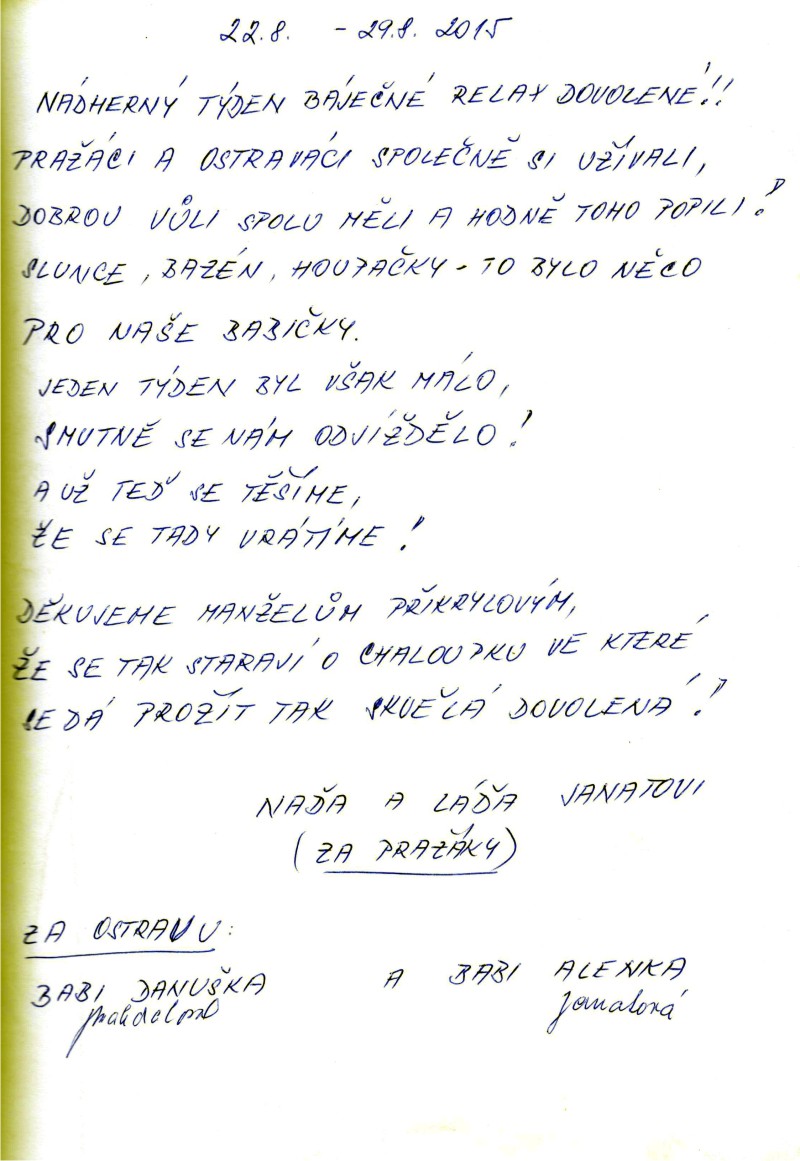 22.8. - 29.8. 2015
NÁDHERNÝ TÝDEN BÁJEČNÉ RELAX DOVOLENÉ!!
PRAŽÁCI A OSTRAVÁCI SPOLEČNĚ SI UŽÍVALI,
DOBROU VŮLI SPOLU MĚLI A HODNĚ TOHO POPILI!
SLUNCE, BAZÉN, HOUPAČKY - TO BYLO NĚCO
PRO NAŠE BABIČKY.
JEDEN TÝDEN BYL VŠAK MÁLO,
SMUTNĚ SE NÁM ODVÍŽDĚLO!
A UŽ TEĎ SE TĚŠÍME,
ŽE SE TADY VRÁTÍME!
DĚKUJEME MANŽELŮM PŘIKRYLOVÝM,
ŽE SE TAK STARAJÍ O CHALOUPKU VE KTERÉ
SE DÁ PROŽÍT TAK SKVĚLÁ DOVOLENÁ!
NAĎA A LÁĎA JANATOVI
(ZA PRAŽÁKY)
ZA OSTRAVU:
BABI DANUŠKA A BABI ALENKA
Janatová